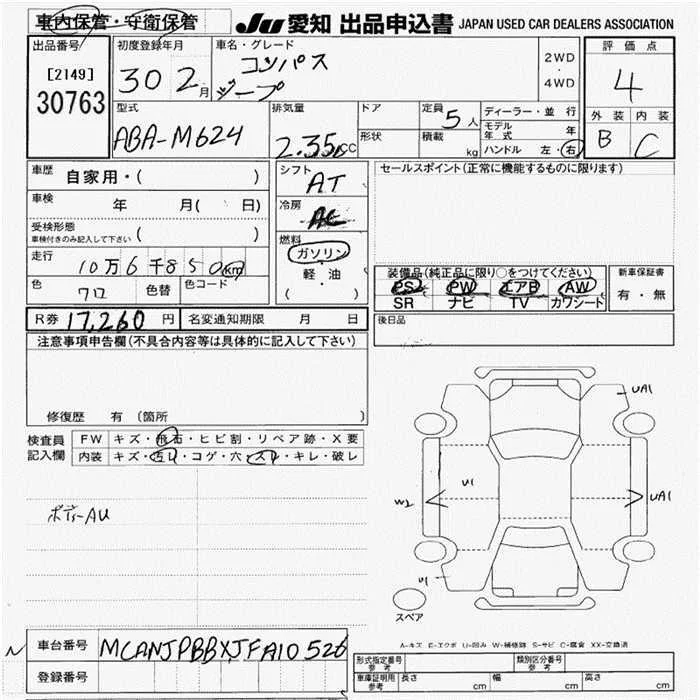 車内保管・守衛保管 JU 愛知 出品申込書 JAPAN USED CAR DEALERS ASSOCIATION
出品番号 初度登録年月 車名・グレード 2WD ・ 4WD 評価点
[2149] 30 2月 コンパス 4
30763 ジープ
型式 排気量 ドア 定員 5人 ディーラー・並行 外装 内装
ABA-M624 2.35 cc 形状 積載 kg モデル年式 年 B C
ハンドル 左・右
車歴 自家用・( ) シフト AT セールスポイント(正常に機能するものに限ります)
車検 年 月( 日) 冷房 AC
受検形態 ( )
車検付きのみ記入して下さい
燃料 ガソリン 軽・油 ( ・ )
走行 10万6千850km 装備品(純正品に限り○をつけてください) 新車保証書
色 クロ 色替 色コード PS PW エアB AW 有・無
SR ナビ TV カワシート
R券 17,260円 名変通知期限 月 日 後日品
注意事項申告欄(不具合内容等は具体的に記入して下さい)
UA1
修復歴 有 (箇所 )
検査員 FW キズ・飛石・ヒビ割・リペア跡・X要
記入欄 内装 キズ・汚レ・コゲ・穴・スレ・キレ・破レ
W2 U1 UA1
ボディーAU
U1
スペア
A-キズ E-エクボ U-凹み W-補修跡 S-サビ C-腐食 XX-交換済
N 車台番号 MCANJPBBXJFA10526
登録番号
形式指定番号 参考 類別区分番号 参考
車庫証明用 参考 長さ cm 幅 cm 高さ cm